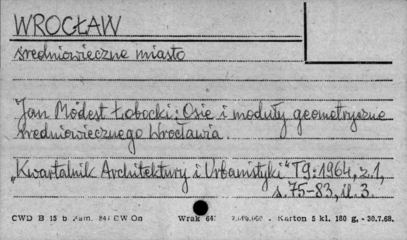 WROCŁAW
średniowieczne miasto
Jan Modest Łobocki: Osie i moduły geometryczne
średniowiecznego Wrocławia.
„Kwartalnik Architektury i Urbanistyki" T9:1964, z.1,
s. 75-83, il. 3.
CWD B 15 b Zam. 841 CW On Wrak 64 - Karton 5 kl. 180 g, - 30.7.68.